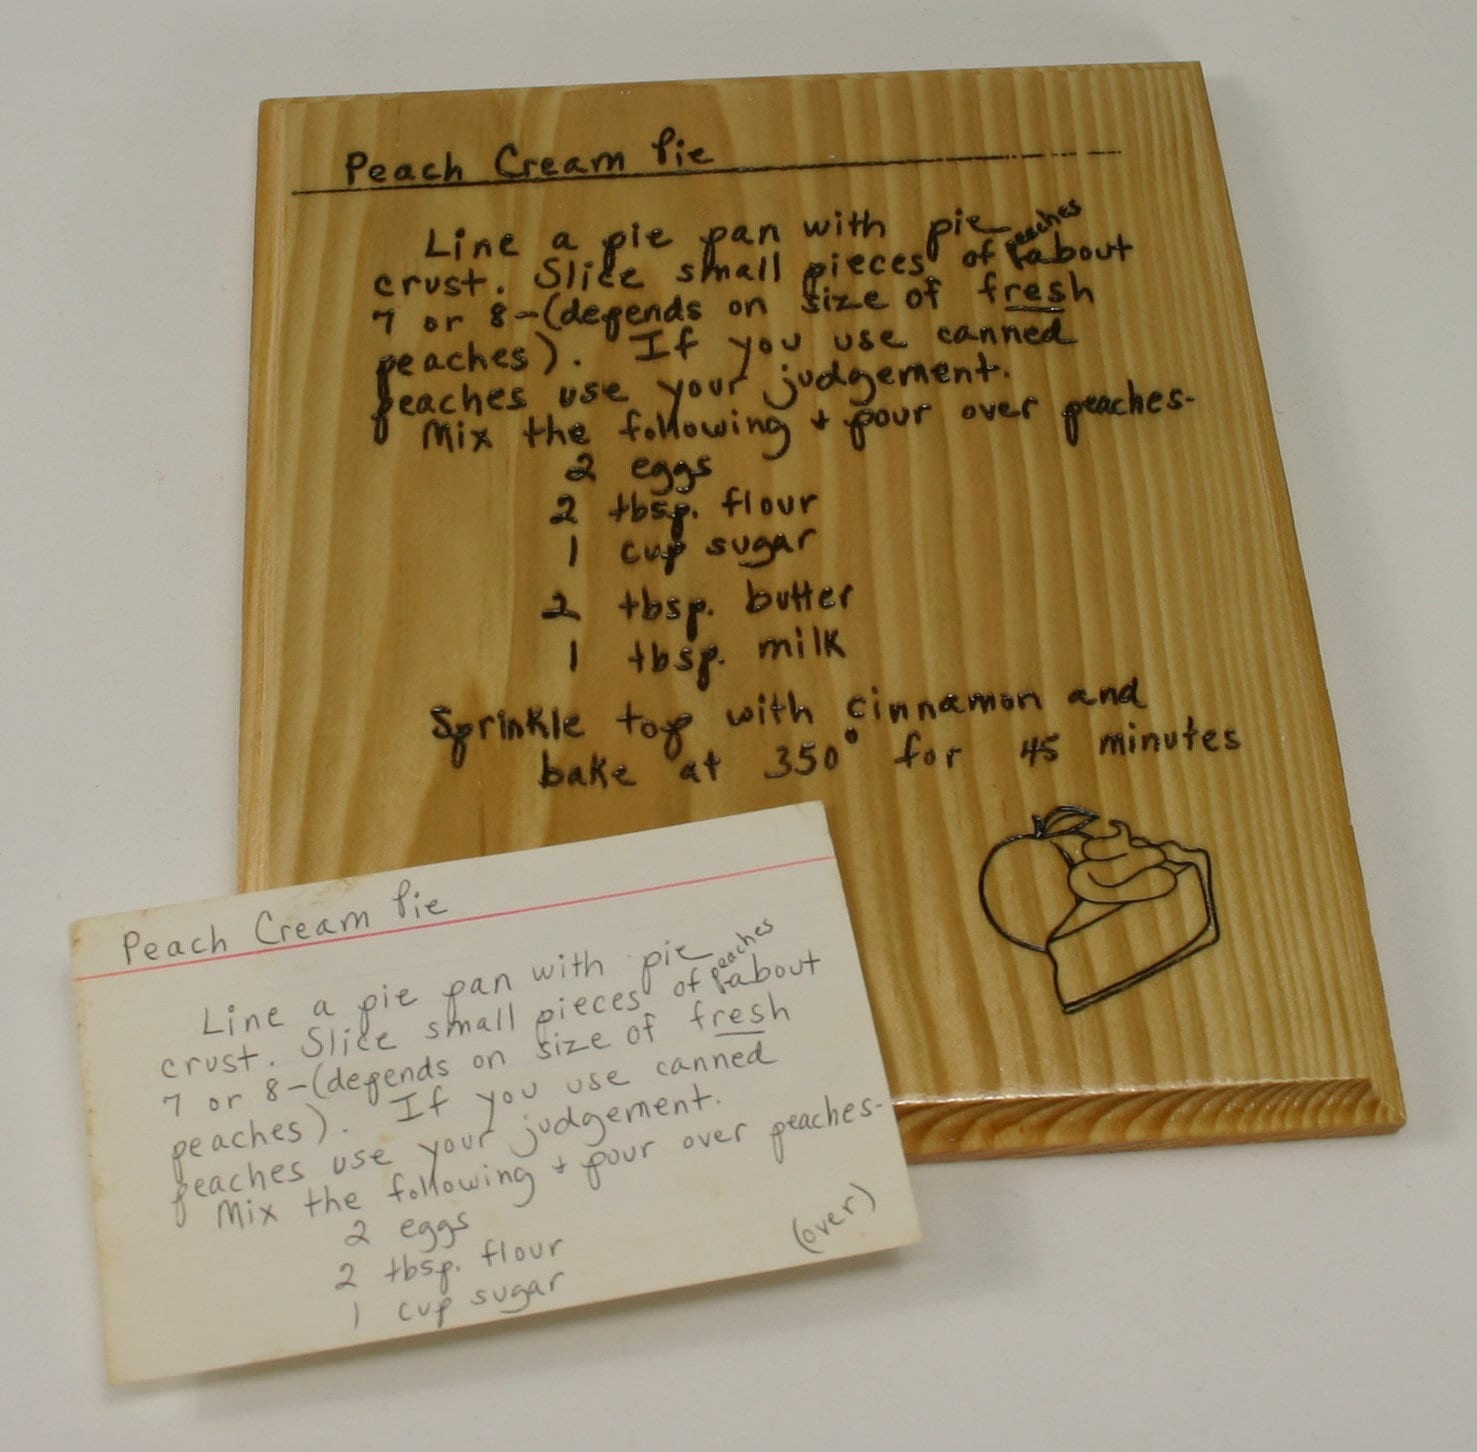 Peach Cream Pie
Line a pie pan with pie
crust. Slice small pieces of peaches about
7 or 8-(depends on size of fresh
peaches). If you use canned
peaches use your judgement.
Mix the following + pour over peaches-
2 eggs
2 tbsp. flour
1 cup sugar
2 tbsp. butter
1 tbsp. milk
Sprinkle top with cinnamon and
bake at 350° for 45 minutes
Peach Cream Pie
Line a pie pan with pie
crust. Slice small pieces of peaches about
7 or 8-(depends on size of fresh
peaches). If you use canned
peaches use your judgement.
Mix the following + pour over peaches-
2 eggs
2 tbsp. flour
1 cup sugar
(over)